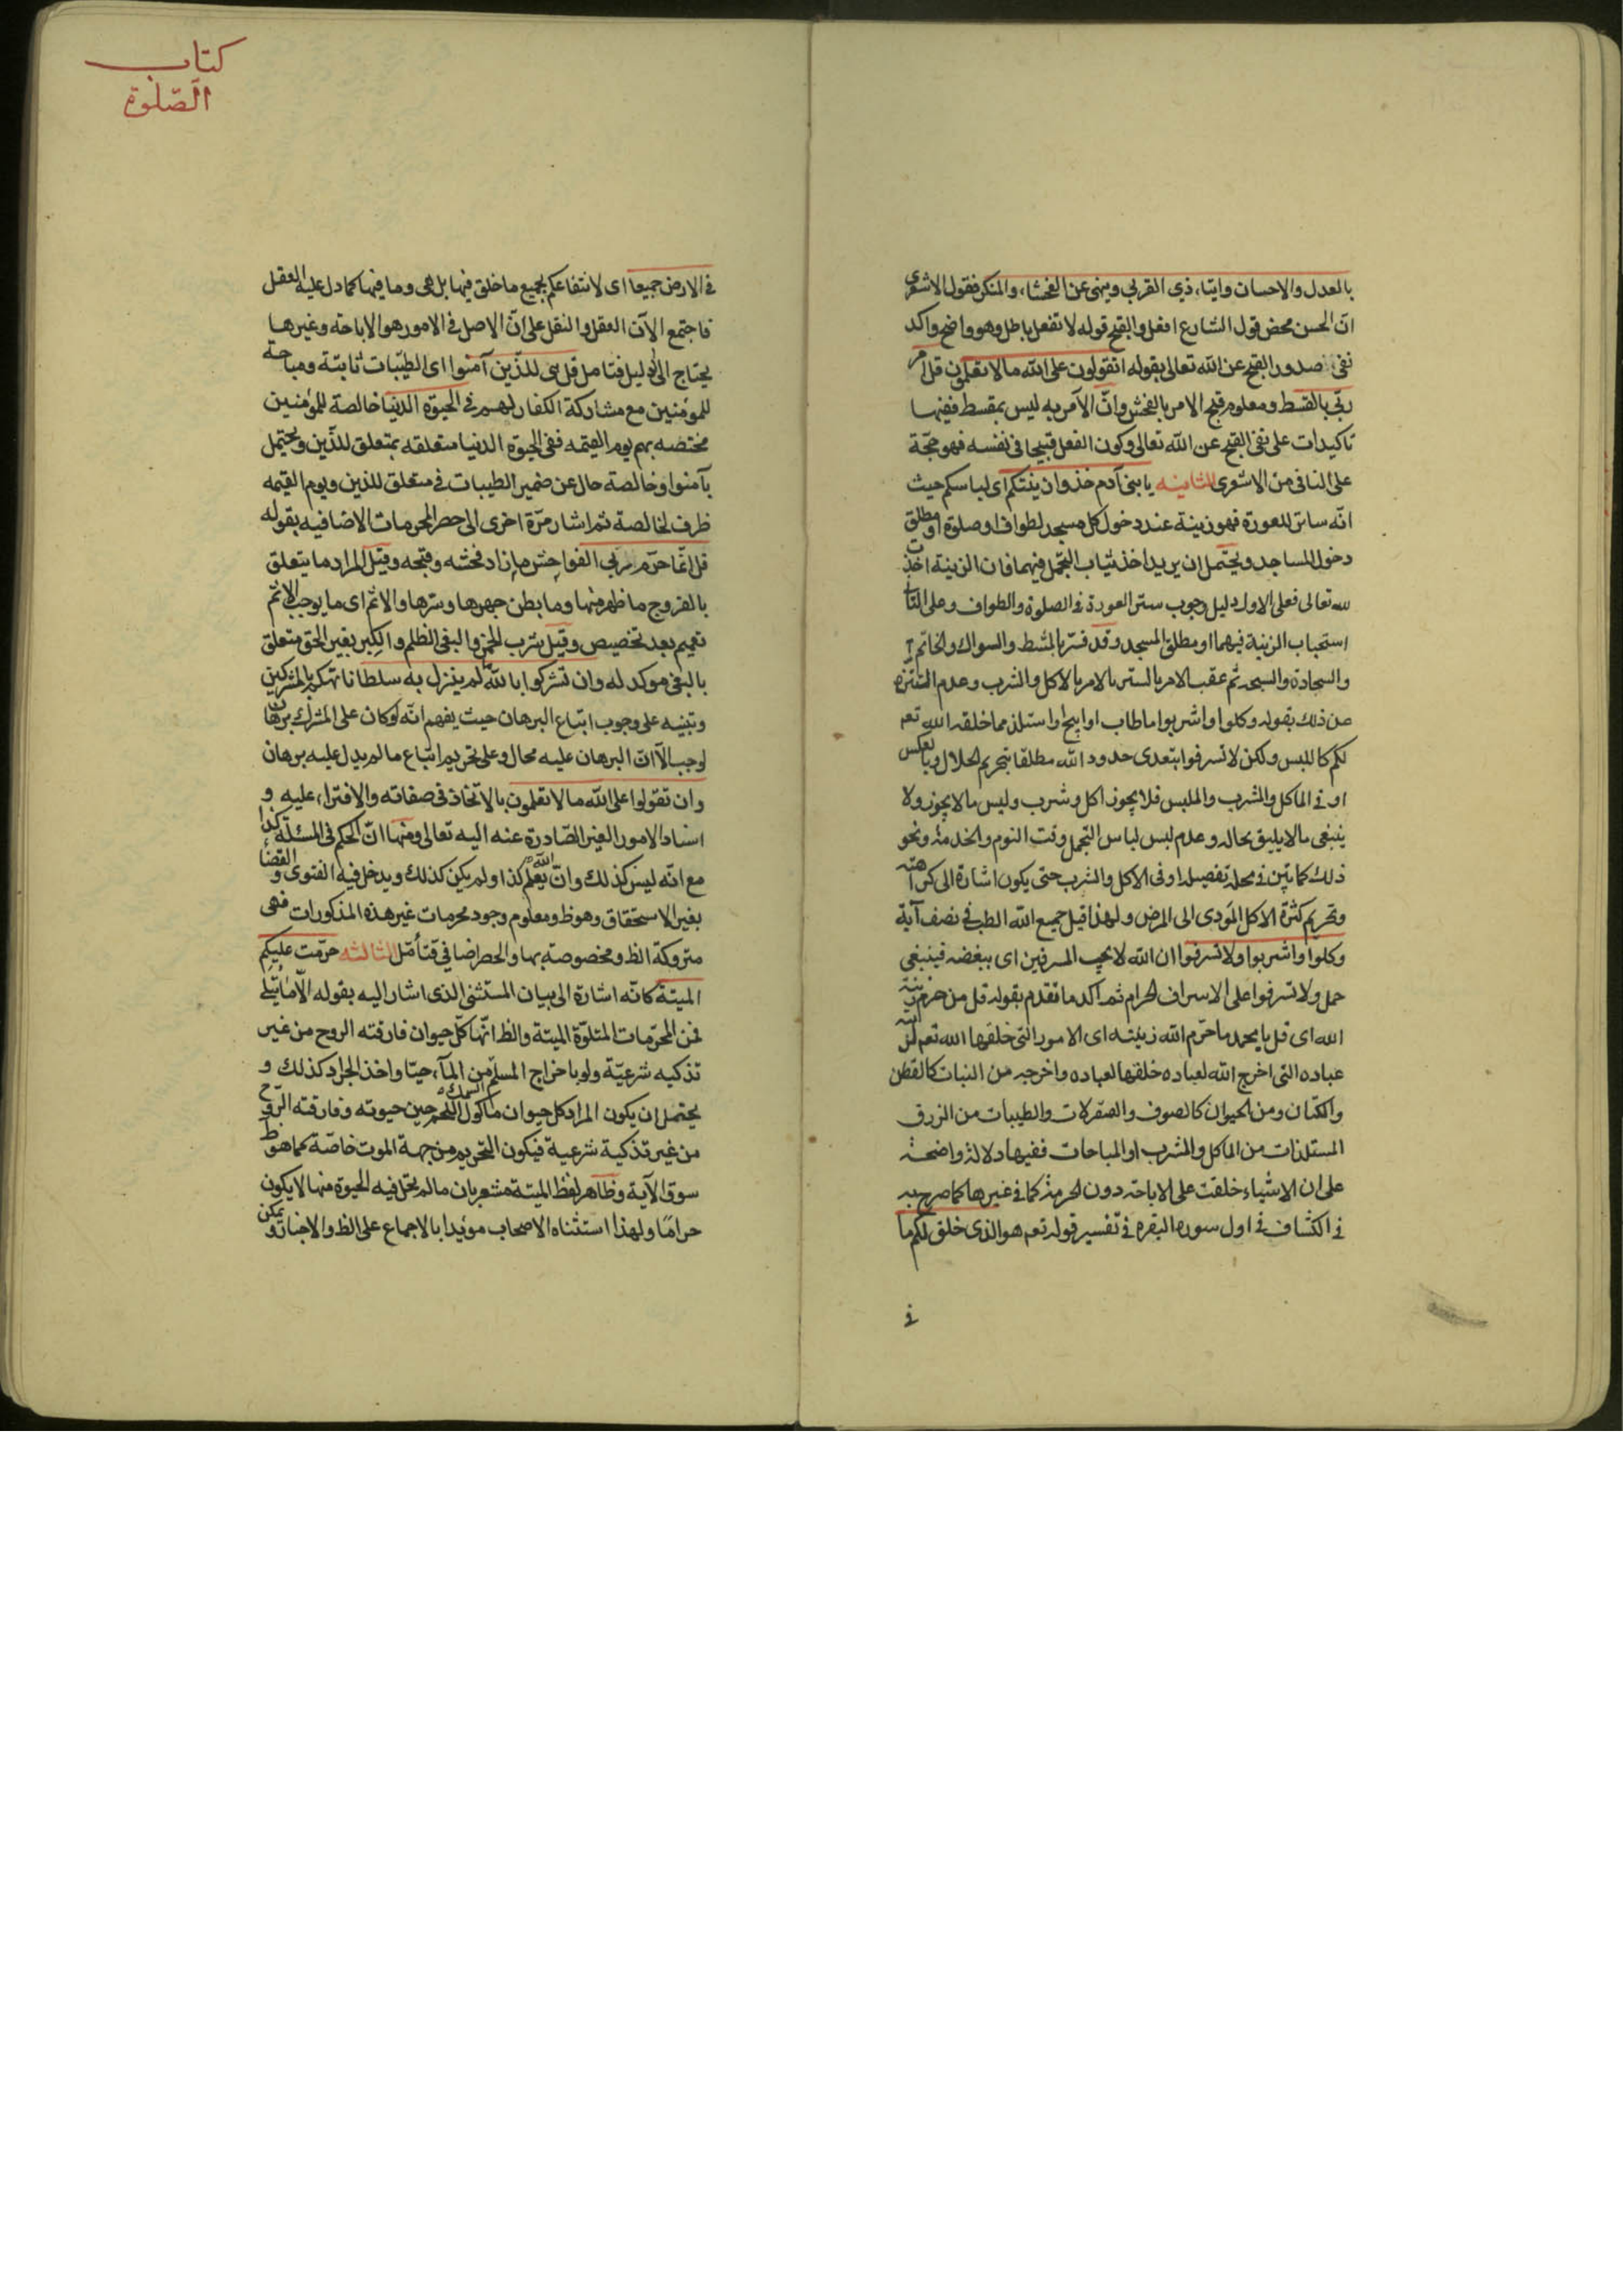 بالعدل والاحسان وايتاء ذي القربى وينهى عن الفحشاء والمنكر فقول الاشعري
انّ الحسن محض قول الشارع افعل والقبح قوله لا تفعل باطل وهو واضح واكد
نفى صدور القبح عن الله تعالى بقوله اتقولون على الله ما لا تعلمون قل امر
ربّي بالقسط ومعلوم قبح الامر بالفحش وانّ الآمر به ليس بمقسط ففيها
تاكيدات على نفى القبح عن الله تعالى وكون الفعل قبيحا فى نفسه فهو حجّة
على النافى من الاشعرى الثانيه يا بنى آدم خذوا زينتكم اى لباسكم حيث
انّه ساتر للعورة فهو زينة عند دخول كل مسجد لطواف او صلوة او مطلق
دخول المساجد ويحتمل ان يريد اخذ ثياب التجمل فيهما فان الزينة اخذت
لله تعالى فعلى الاول دليل وجوب ستر العورة فى الصلوة والطواف وعلى الثا
استحباب الزينة فيهما او مطلق المسجد وقد فسّر بالمشط والسواك والخاتم
والسجادة والسبحه ثم عقب الامر بالستر بالامر بالاكل والشرب وعدم التنزه
عن ذلك بقوله وكلوا واشربوا ما طاب او ابيح او استلذ مما خلقه الله تعم
لكم كاللبس ولكن لا تسرفوا بتعدى حدود الله مطلقا بتحريم الحلال وبالعكس
او فى الماكل والشرب والملبس فلا يجوز اكل وشرب ولبس ما لا يجوز ولا
ينبغى ما لا يليق بحاله وعدم لبس لباس التجمل وقت النوم والخدمة ونحو
ذلك كما بيّن فى محله تفصيله او فى الاكل والشرب حتى يكون اشارة الى كراهته
وتحريم كثرة الاكل المؤدى الى المرض ولهذا قيل جميع الله الطب فى نصف آية
وكلوا واشربوا ولا تسرفوا ان الله لا يحب المسرفين اى يبغضه فينبغى
حمل ولا تسرفوا على الاسراف الحرام ثم اكد ما تقدم بقوله قل من حرم زينة
الله اى قل يا محمد ما حرّم الله زينته اى الامور التى خلقها الله تعم
عباده التى اخرج الله لعباده خلقها لعباده واخرجه من النبات كالقطن
والكتان ومن الحيوان كالصوف والسقرلات والطيبات من الرزق
المستلذات من الماكل والمشرب او المباحات ففيها دلالة واضحة
على ان الاشياء خلقت على الاباحة دون الحرمة كما فى غيرها كما صرح به
فى الكشاف فى اول سورة البقرة فى تفسير قوله تعم هو الذى خلق لكم ما
فى
كتاب
الصّلوة
فى الارض جميعا اى لانتفاعكم بجميع ما خلق فيها بل هى وما فيها كما دل عليه العقل
فاجتمع الآن العقل والنقل على انّ الاصل فى الامور هو الاباحة وغيرها
يحتاج الى دليل فتامل قل هى للذّين آمنوا اى الطيّبات ثابتة ومباحة
للمؤمنين مع مشاركة الكفار لهم فى الحيوة الدنيا خالصة للمؤمنين
مختصه بهم يوم القيمه ففى الحيوة الدنيا متعلقه بمتعلق للذّين ويحتمل
بآمنوا وخالصة حال عن ضمير الطيبات فى متعلق للذين ويوم القيمه
ظرف لخالصة ثم اشار مرّة اخرى الى حصر المحرمات الاضافيه بقوله
قل انّما حرّم ربي الفواحش ما زاد فحشه وقبحه وقيل المراد ما يتعلق
بالفروج ما ظهر منها وما بطن جهرها وسرها والاثم اى ما يوجب الاثم
تعميم بعد تخصيص وقيل شرب الخمر والبغى الظلم والكبر بغير الحق متعلق
بالبغى موكد له وان تشركوا بالله ما لم ينزل به سلطانا تهكم بالمشركين
وتنبيه على وجوب اتباع البرهان حيث يفهم انّه لو كان على المشرك برهان
لوجب الّا انّ البرهان عليه محال وعلى تحريم اتباع ما لم يدل عليه برهان
وان تقولوا على الله ما لا تعلمون بالاتخاذ فى صفاته والافتراء عليه و
اسناد الامور الغير الصّادرة عنه اليه تعالى ومنها انّ الحكم فى المسئلة كذا
مع انّه ليس كذلك وانّ الله يعلم كذا ولم يكن كذلك ويدخل فيه الفتوى والقضاء
بغير الاستحقاق وهو ظ ومعلوم وجود محرمات غير هذه المذكورات فهى
متروكة الظ ومخصوصة بها والحصر اضافى فتأمّل الثالثه حرّمت عليكم
الميتة كانّه اشارة الى بيان المستثنى الذى اشار اليه بقوله الّا ما يتلى
فمن المحرّمات المتلوّة الميتة والظ انّها كلّ حيوان فارقته الروح من غير
تذكيه شرعيّة ولو باخراج المسلم السمك من المآء حيّا واخذ الجراد كذلك و
يحتمل ان يكون المراد كل حيوان ماكول اللّحم حين حيوته وفارقته الرّوح
من غير تذكية شرعية فيكون التحريم من جهة الموت خاصّة كما هو ظ
سوق الآية وظاهر لفظ الميتة مشعر بان ما لم تحل فيه الحيوة منها لا يكون
حرامًا ولهذا استثناه الاصحاب مؤيدا بالاجماع على الظ والاخبار ويمكن